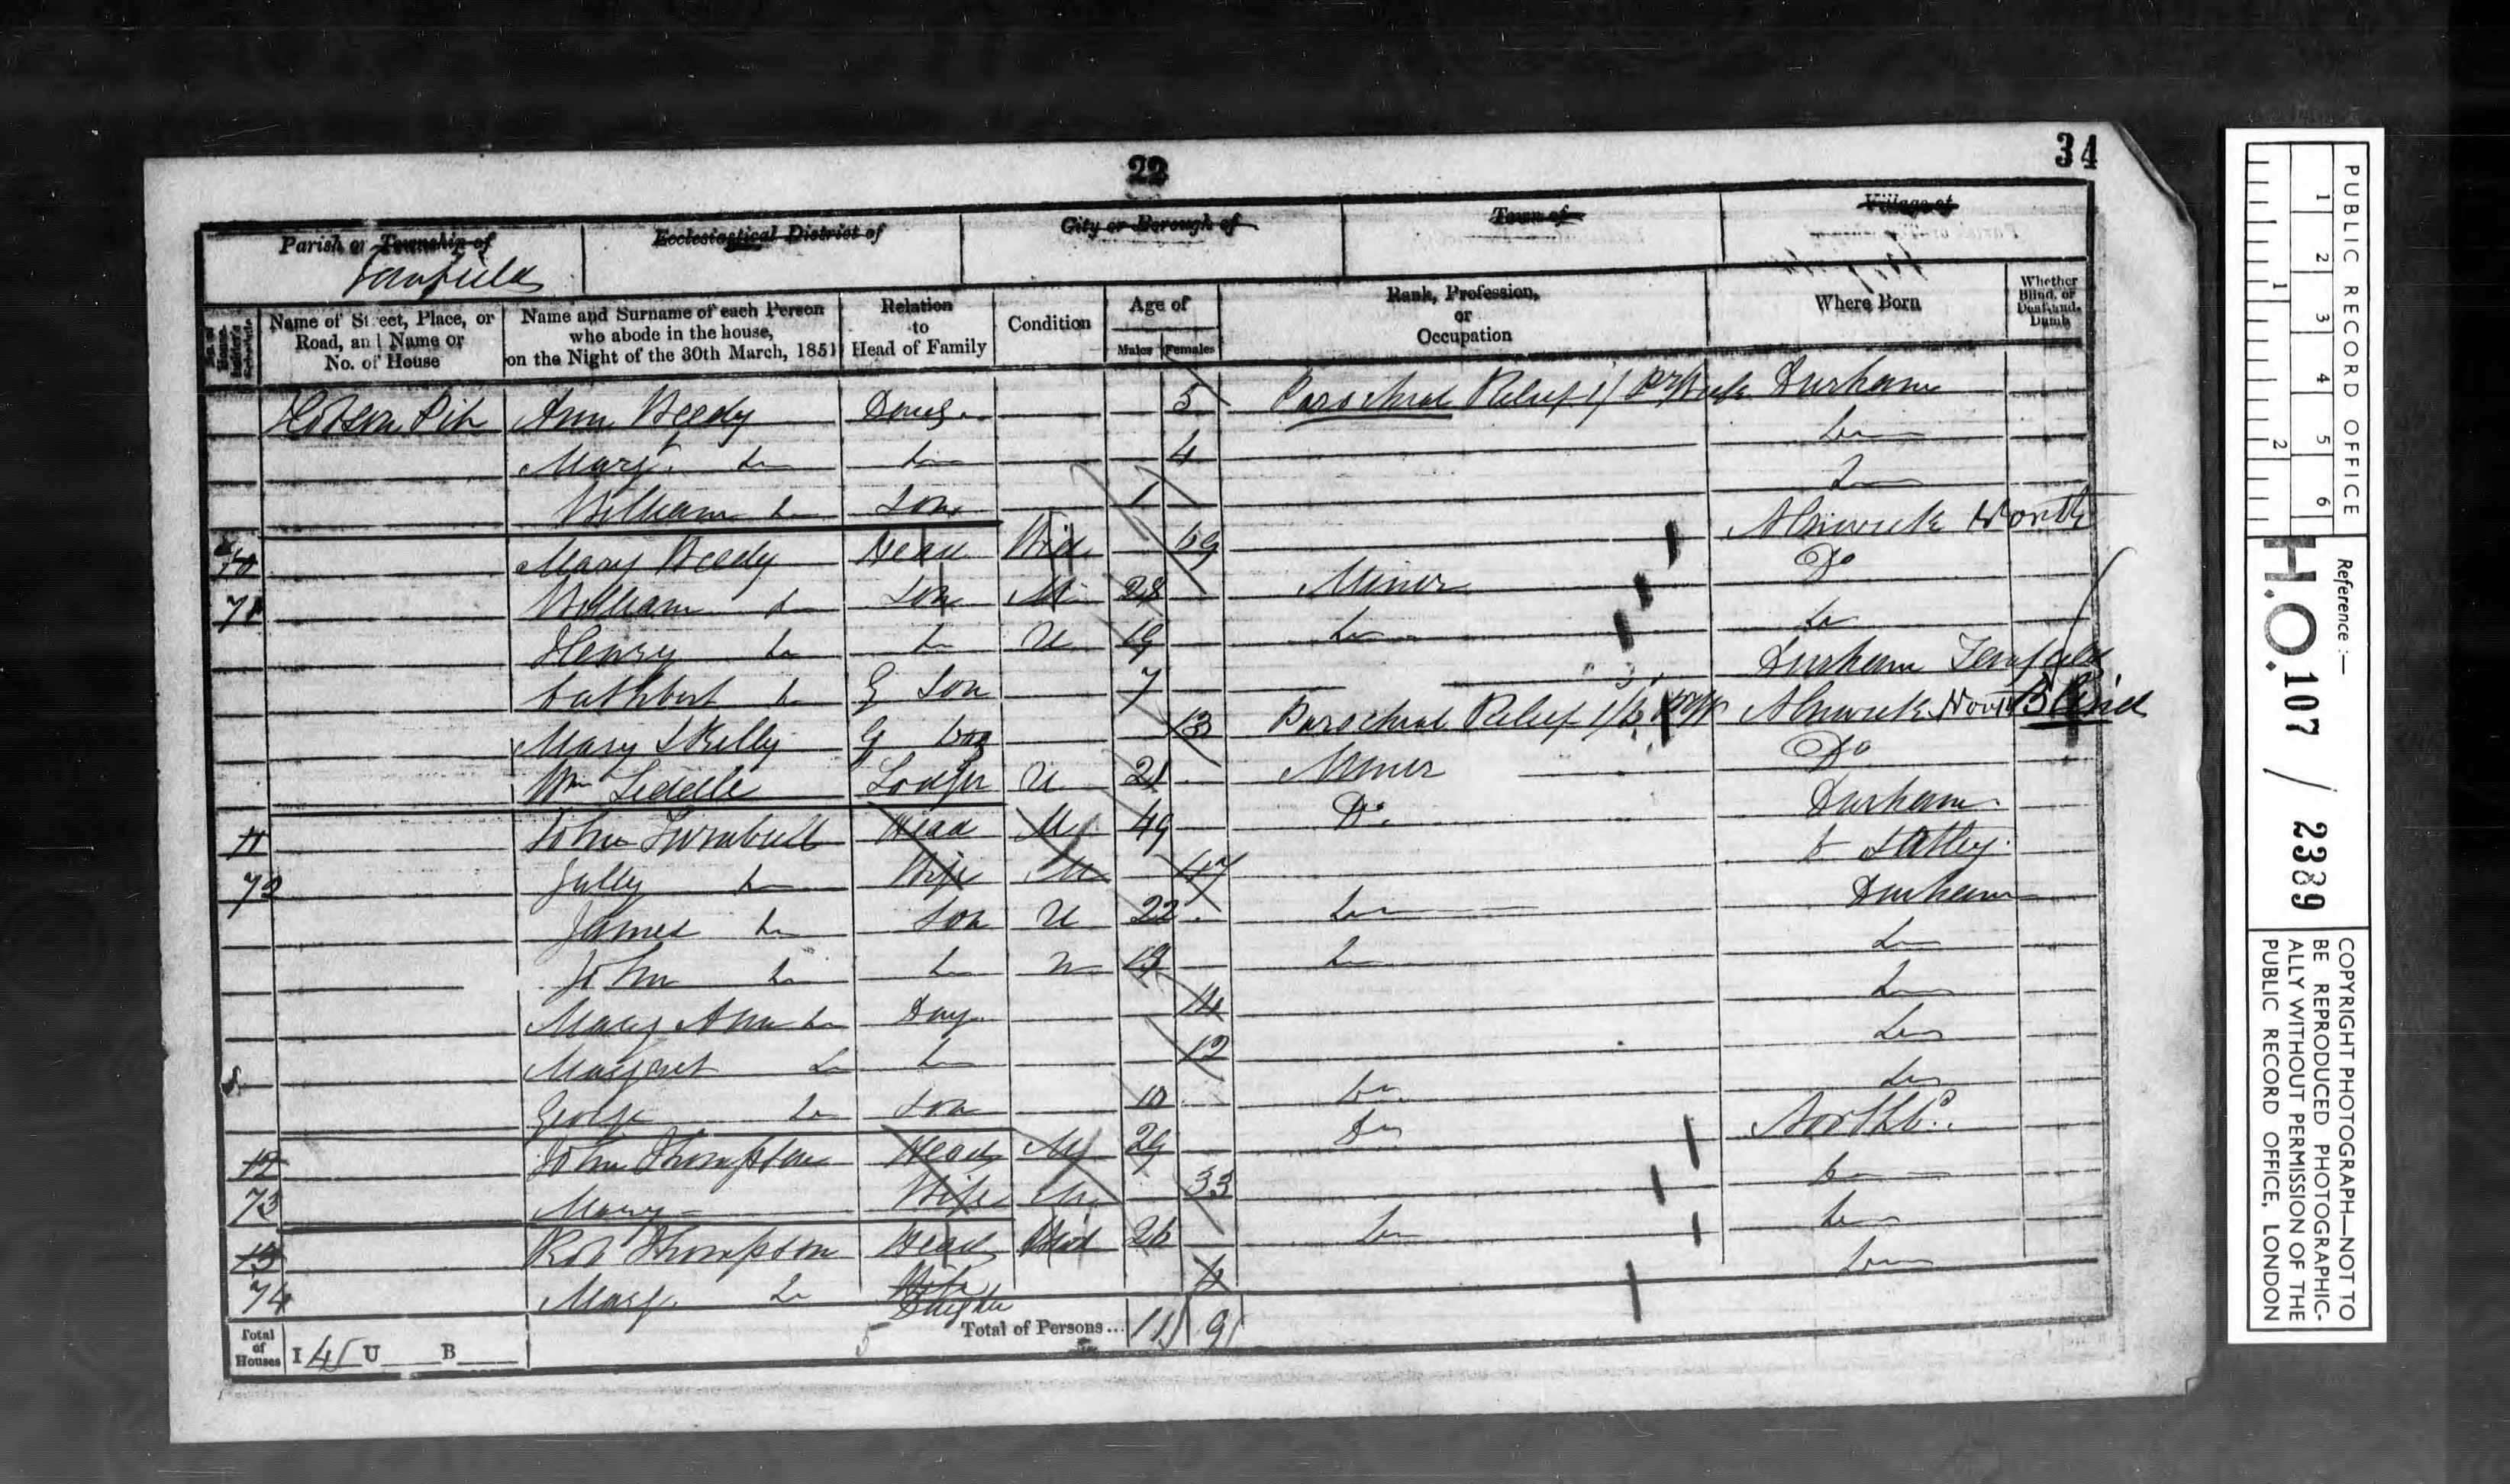 22
34
Parish or Township of
Tanfield
Ecclesiastical District of
City or Borough of
Town of
Village of
No. of House-holder's Schedule
Name of Street, Place, or Road, and Name or No. of House
Name and Surname of each Person who abode in the house, on the Night of the 30th March, 1851
Relation to Head of Family
Condition
Age of
Males
Females
Rank, Profession, or Occupation
Where Born
Whether Blind, or Deaf-and-Dumb
Hobson Pit Ann Reedy Daug. 5 Parochial Relief 1/ Pr Week Durham
Margt. Do Do 4 Do
William Do Son 1 Do
70 Mary Reedy Head Wid 69 Alnwick North
71 William Do Son M 28 Miner Do
Henry Do Do U 19 Do Do
Cuthbert Do G Son 7 Durham Tanfield
Mary Skelly G Dag 13 Parochial Relief 1/6 Pr W Alnwick North Blind
Wm Liddle Lodger U 21 Miner Do
71 John Turnbull Head M 49 Do. Durham
72 Jully Do Wife M 47 Do Satley
James Do Son U 22 Do Durham
John Do Do U 19 Do Do
Mary Ann Do Day. 14 Do
Margaret Do Do 12 Do
George Do Son 10 Do Do
72 John Thompson Head M 29 Do Northd.
73 Mary Wife M 33 Do
73 Rob Thompson Head Wid 26 Do Do
74 Marg. Do Wife Daughter 4 Do
Total of Houses I 4 U B
5
Total of Persons... 11 9
PUBLIC RECORD OFFICE
1 2 3 4 5 6
1 2
Reference:—
H.O. 107 / 2389
COPYRIGHT PHOTOGRAPH—NOT TO BE REPRODUCED PHOTOGRAPHIC-ALLY WITHOUT PERMISSION OF THE PUBLIC RECORD OFFICE, LONDON